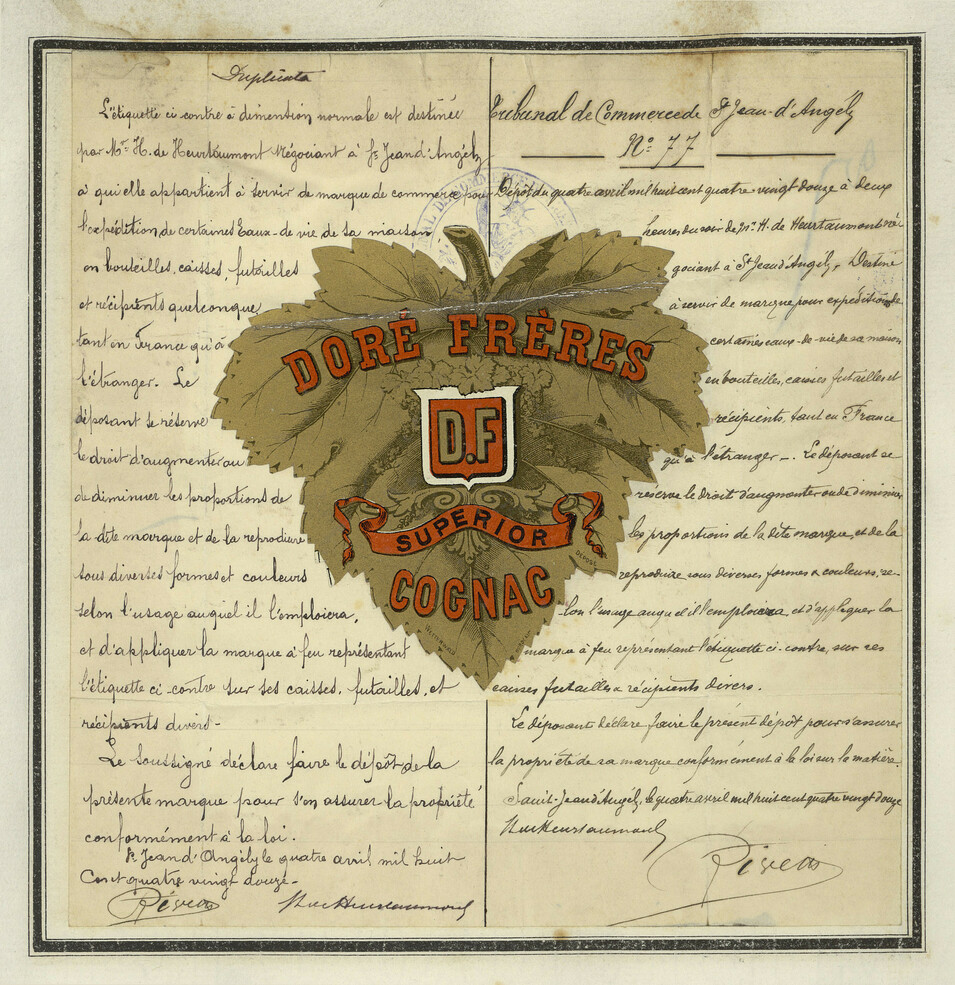 Duplicata
L'étiquette ci contre à dimension normale est destinée
par Mr H. de Heurtaumont Négociant à St Jean d'Angély
à qui elle appartient à servir de marque de commerce pour
l'expédition de certaines Eaux-de vie de sa maison
en bouteilles, caisses, futailles
et récipients quelconque
tant en France qu'à
l'étranger. Le
déposant se réserve
le droit d'augmenter ou
de diminuer les proportions de
la dite marque et de la reproduire
sous diverses formes et couleurs
selon l'usage auquel il l'emploiera,
et d'appliquer la marque à feu représentant
l'étiquette ci-contre sur ses caisses, futailles, et
récipients divers-
Le Soussigné déclare faire le dépôt de la
présente marque pour s'en assurer la propriété
conformément à la loi.
St Jean d'Angély le quatre avril mil huit
Cent quatre vingt douze-
DORÉ FRÈRES
D.F
SUPERIOR
COGNAC
DÉPOSÉ
Tribunal de Commerce de St Jean-d'Angély
No 77
Dépôt du quatre avril mil huit cent quatre-vingt douze à deux
heures du soir de Mr. H. de Heurtaumont né-
gociant à St Jean d'Angély, Destiné
à servir de marque pour expédition de
certaines eaux-de-vie de sa maison
en bouteilles, caisses futailles et
récipients, tant en France
qu'à l'étranger -. Le déposant se
réserve le droit d'augmenter ou de diminuer
les proportions de la dite marque, et de la
reproduire sous diverses formes & couleurs, se-
lon l'usage auquel il l'emploiera, et d'appliquer la
marque à feu représentant l'étiquette ci-contre, sur ses
caisses futailles & récipients divers.
Le déposant déclare faire le présent dépôt pour s'assurer
la propriété de sa marque conformément à la loi sur la matière.
Saint-Jean d'Angély, le quatre avril mil huit cent quatre vingt douze